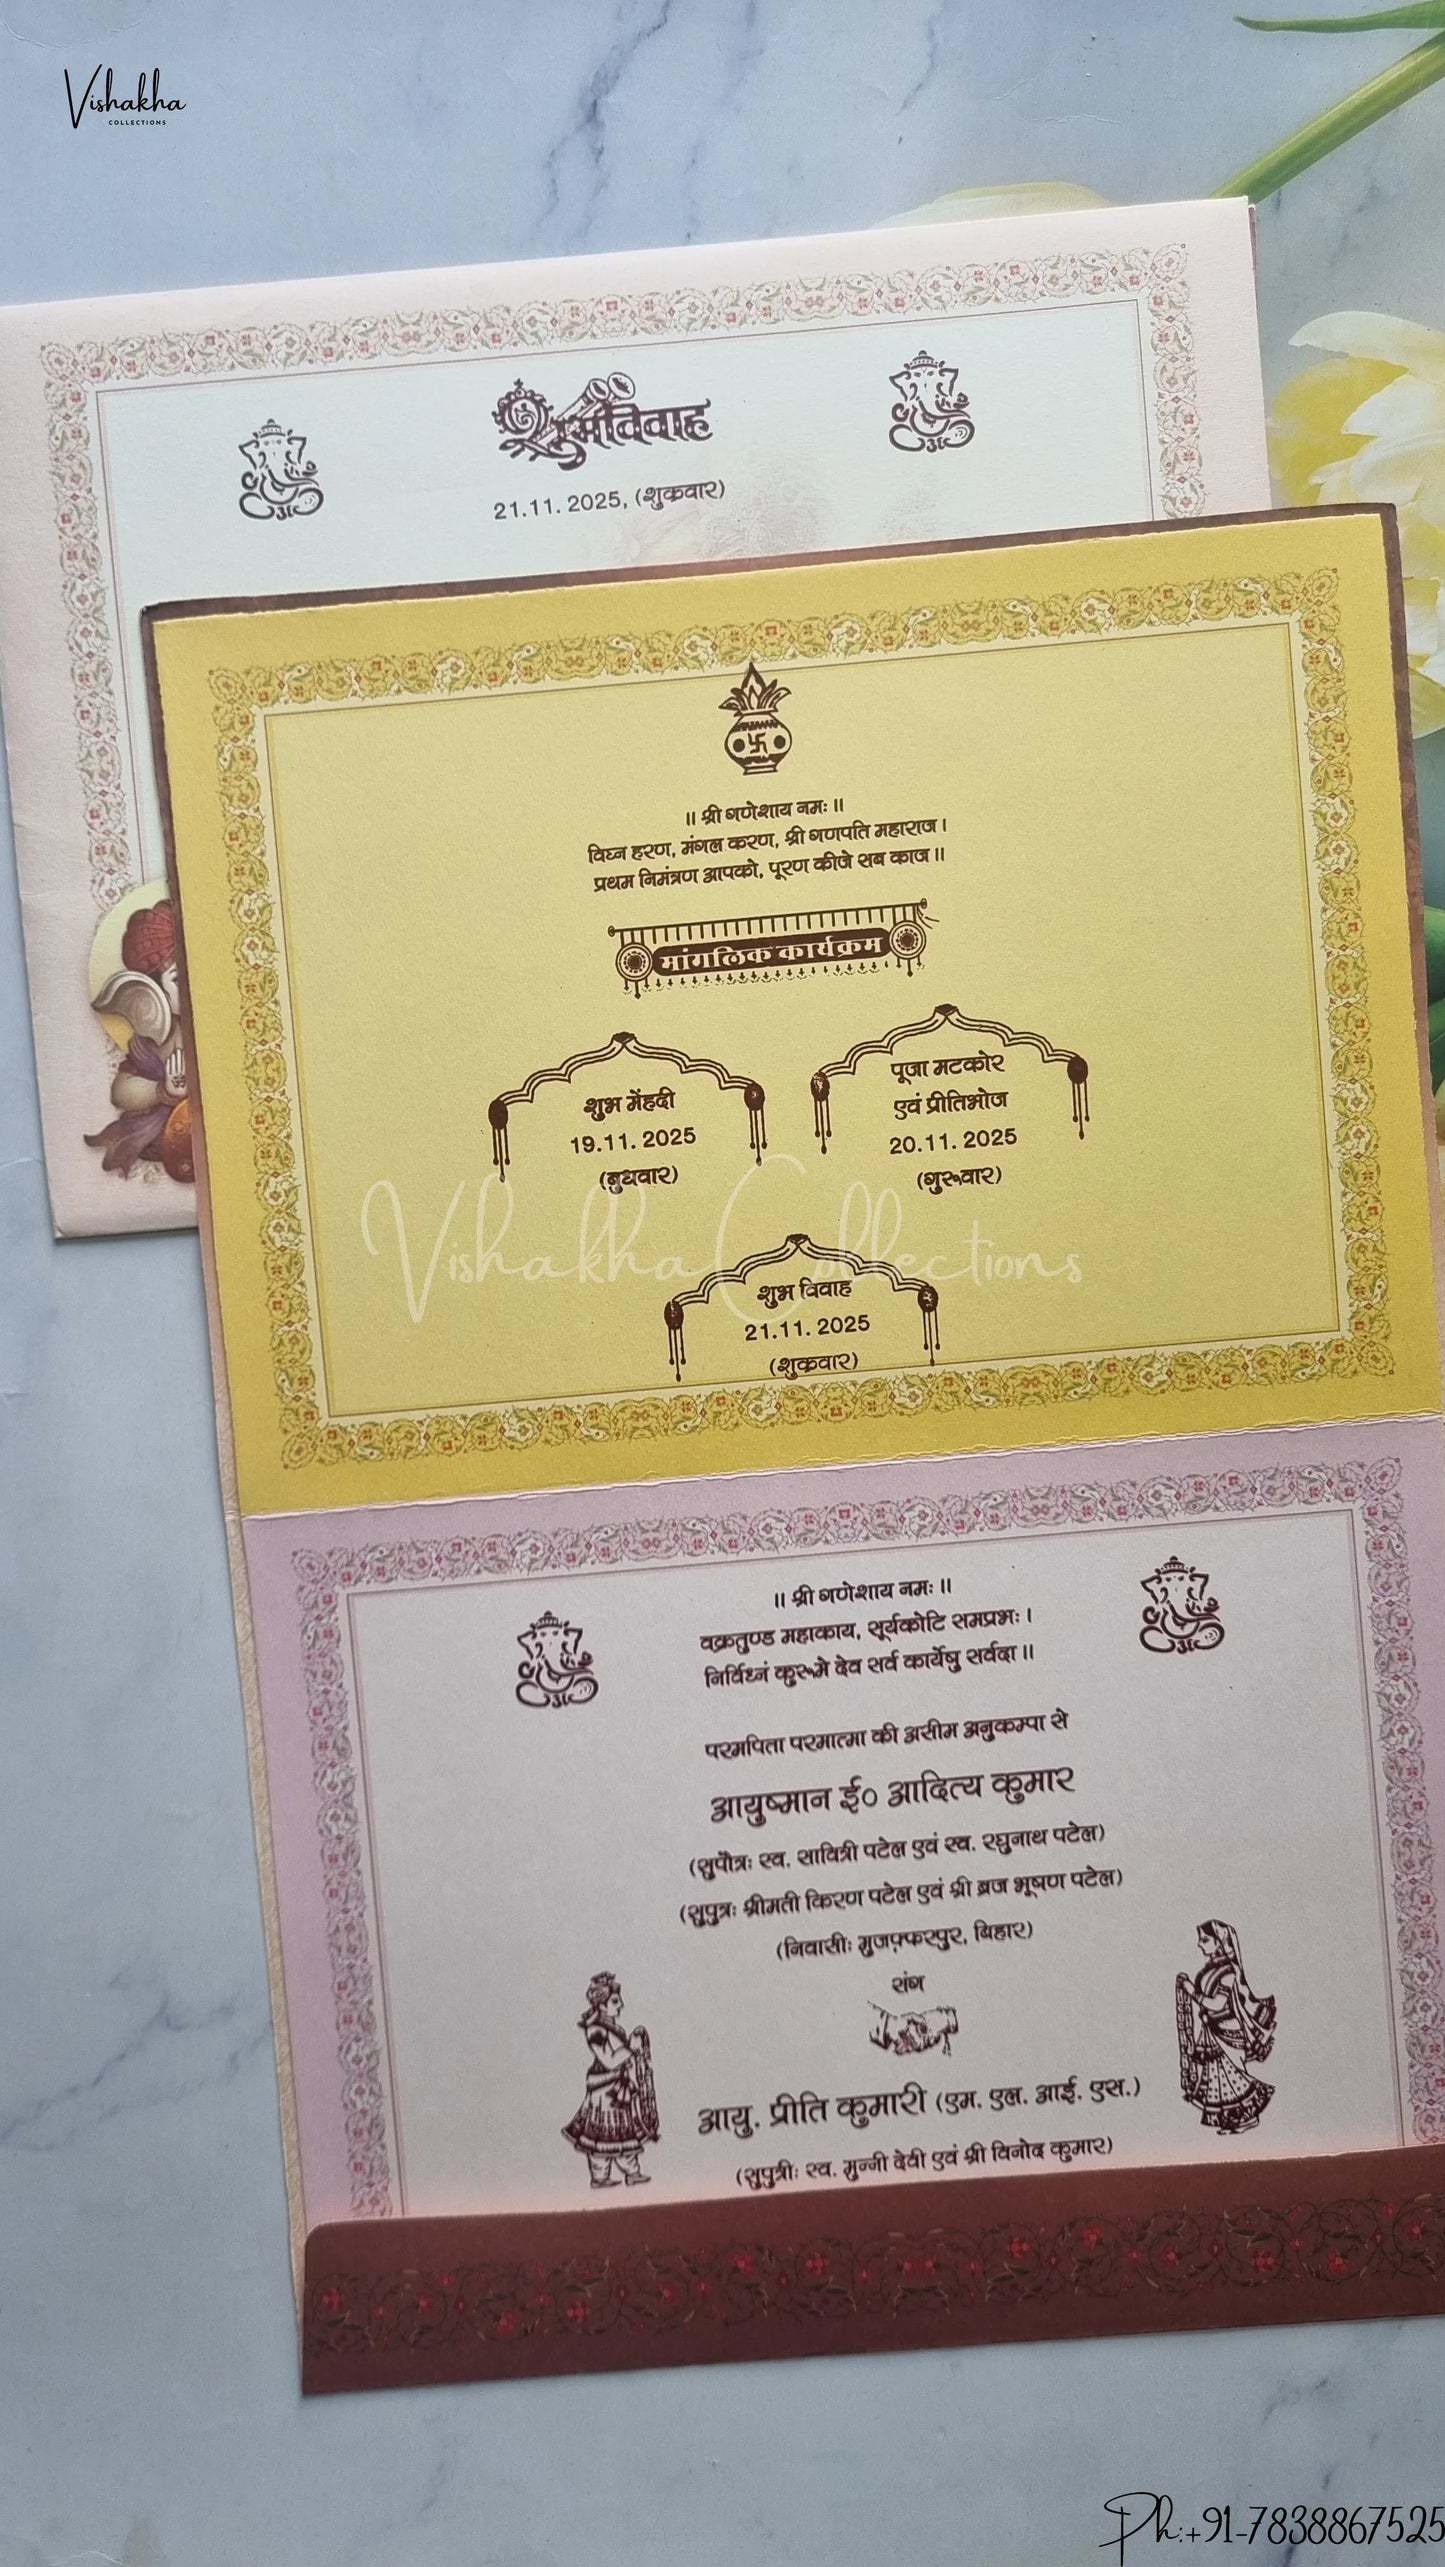 Vishakha
COLLECTIONS
शुभविवाह
21.11.2025, (शुक्रवार)
॥ श्री गणेशाय नमः ॥
विघ्न हरण, मंगल करण, श्री गणपति महाराज।
प्रथम निमंत्रण आपको, पूरण कीजे सब काज॥
मांगलिक कार्यक्रम
शुभ मेंहदी
19.11.2025
(बुधवार)
पूजा मटकोर
एवं प्रीतिभोज
20.11.2025
(गुरूवार)
Vishakha Collections
शुभ विवाह
21.11.2025
(शुक्रवार)
॥ श्री गणेशाय नमः ॥
वक्रतुण्ड महाकाय, सूर्यकोटि समप्रभः।
निर्विघ्नं कुरूमे देव सर्व कार्येषु सर्वदा॥
परमपिता परमात्मा की असीम अनुकम्पा से
आयुष्मान ई० आदित्य कुमार
(सुपौत्रः स्व. सावित्री पटेल एवं स्व. रघुनाथ पटेल)
(सुपुत्रः श्रीमती किरण पटेल एवं श्री ब्रज भूषण पटेल)
(निवासीः मुजफ़्फरपुर, बिहार)
संग
आयु. प्रीति कुमारी (एम. एल. आई. एस.)
(सुपुत्रीः स्व. मुन्नी देवी एवं श्री विनोद कुमार)
Ph:+91-7838867525